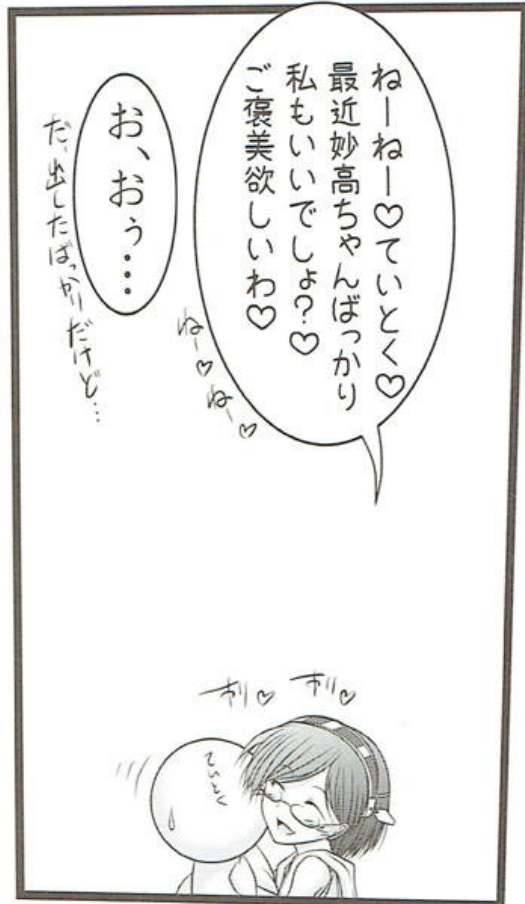 ねーねー♡ていとく♡
最近妙高ちゃんばっかり
私もいいでしょ?♡
ご褒美欲しいわ♡
ねー♡ねー♡
お、おぅ・・・
だ、出したばっかりだけど…
ギリ♡
ギリ♡
ていとく